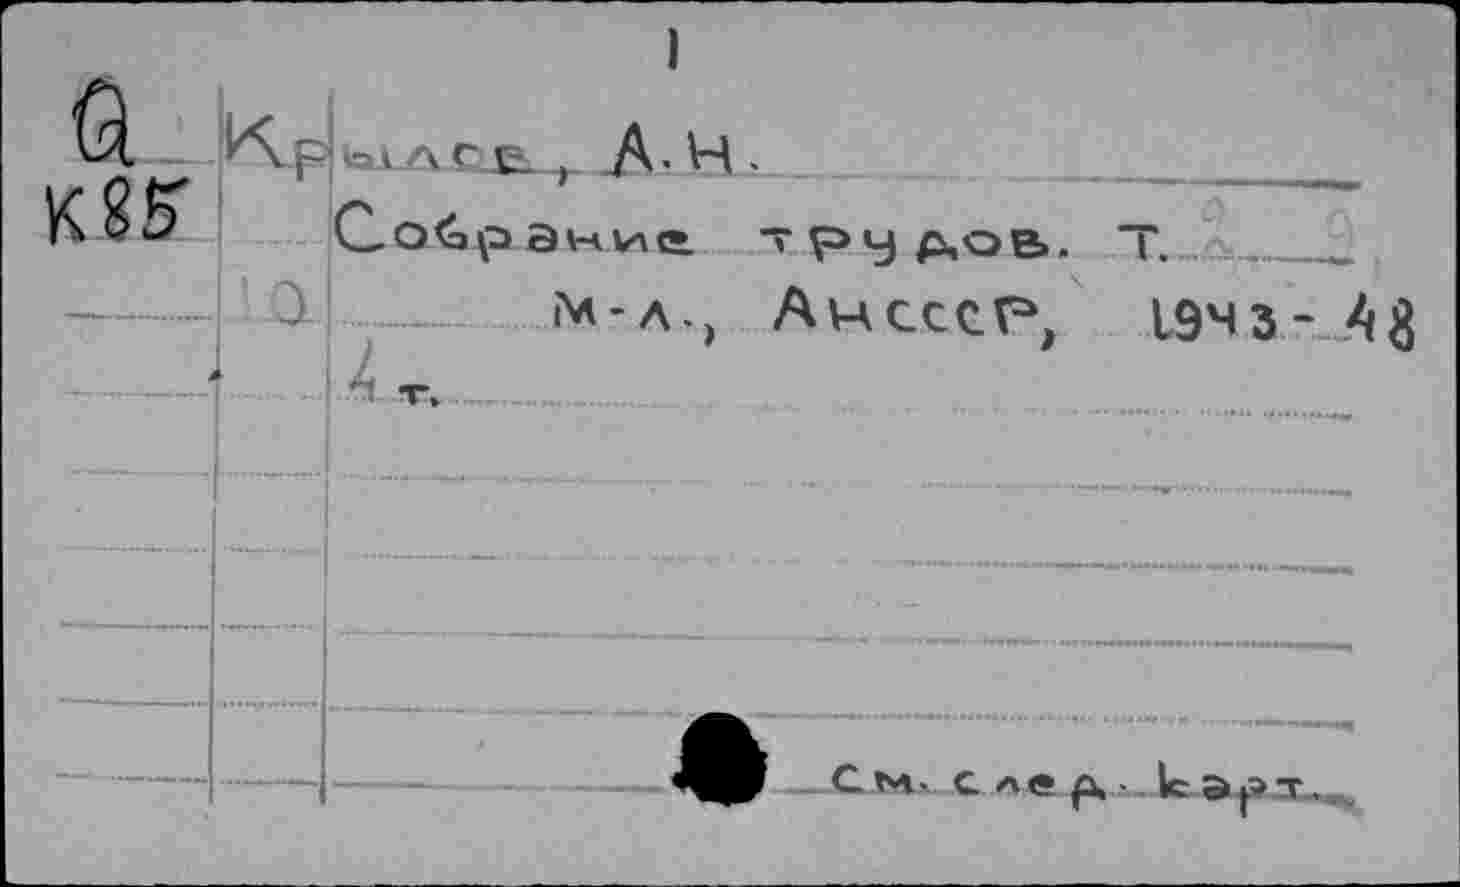 1
Q Крылов, А.Н.
К85 Собрание трудов. Т.
М-Л., АНСССР, 1943-48
4 т.
См. след. карт.